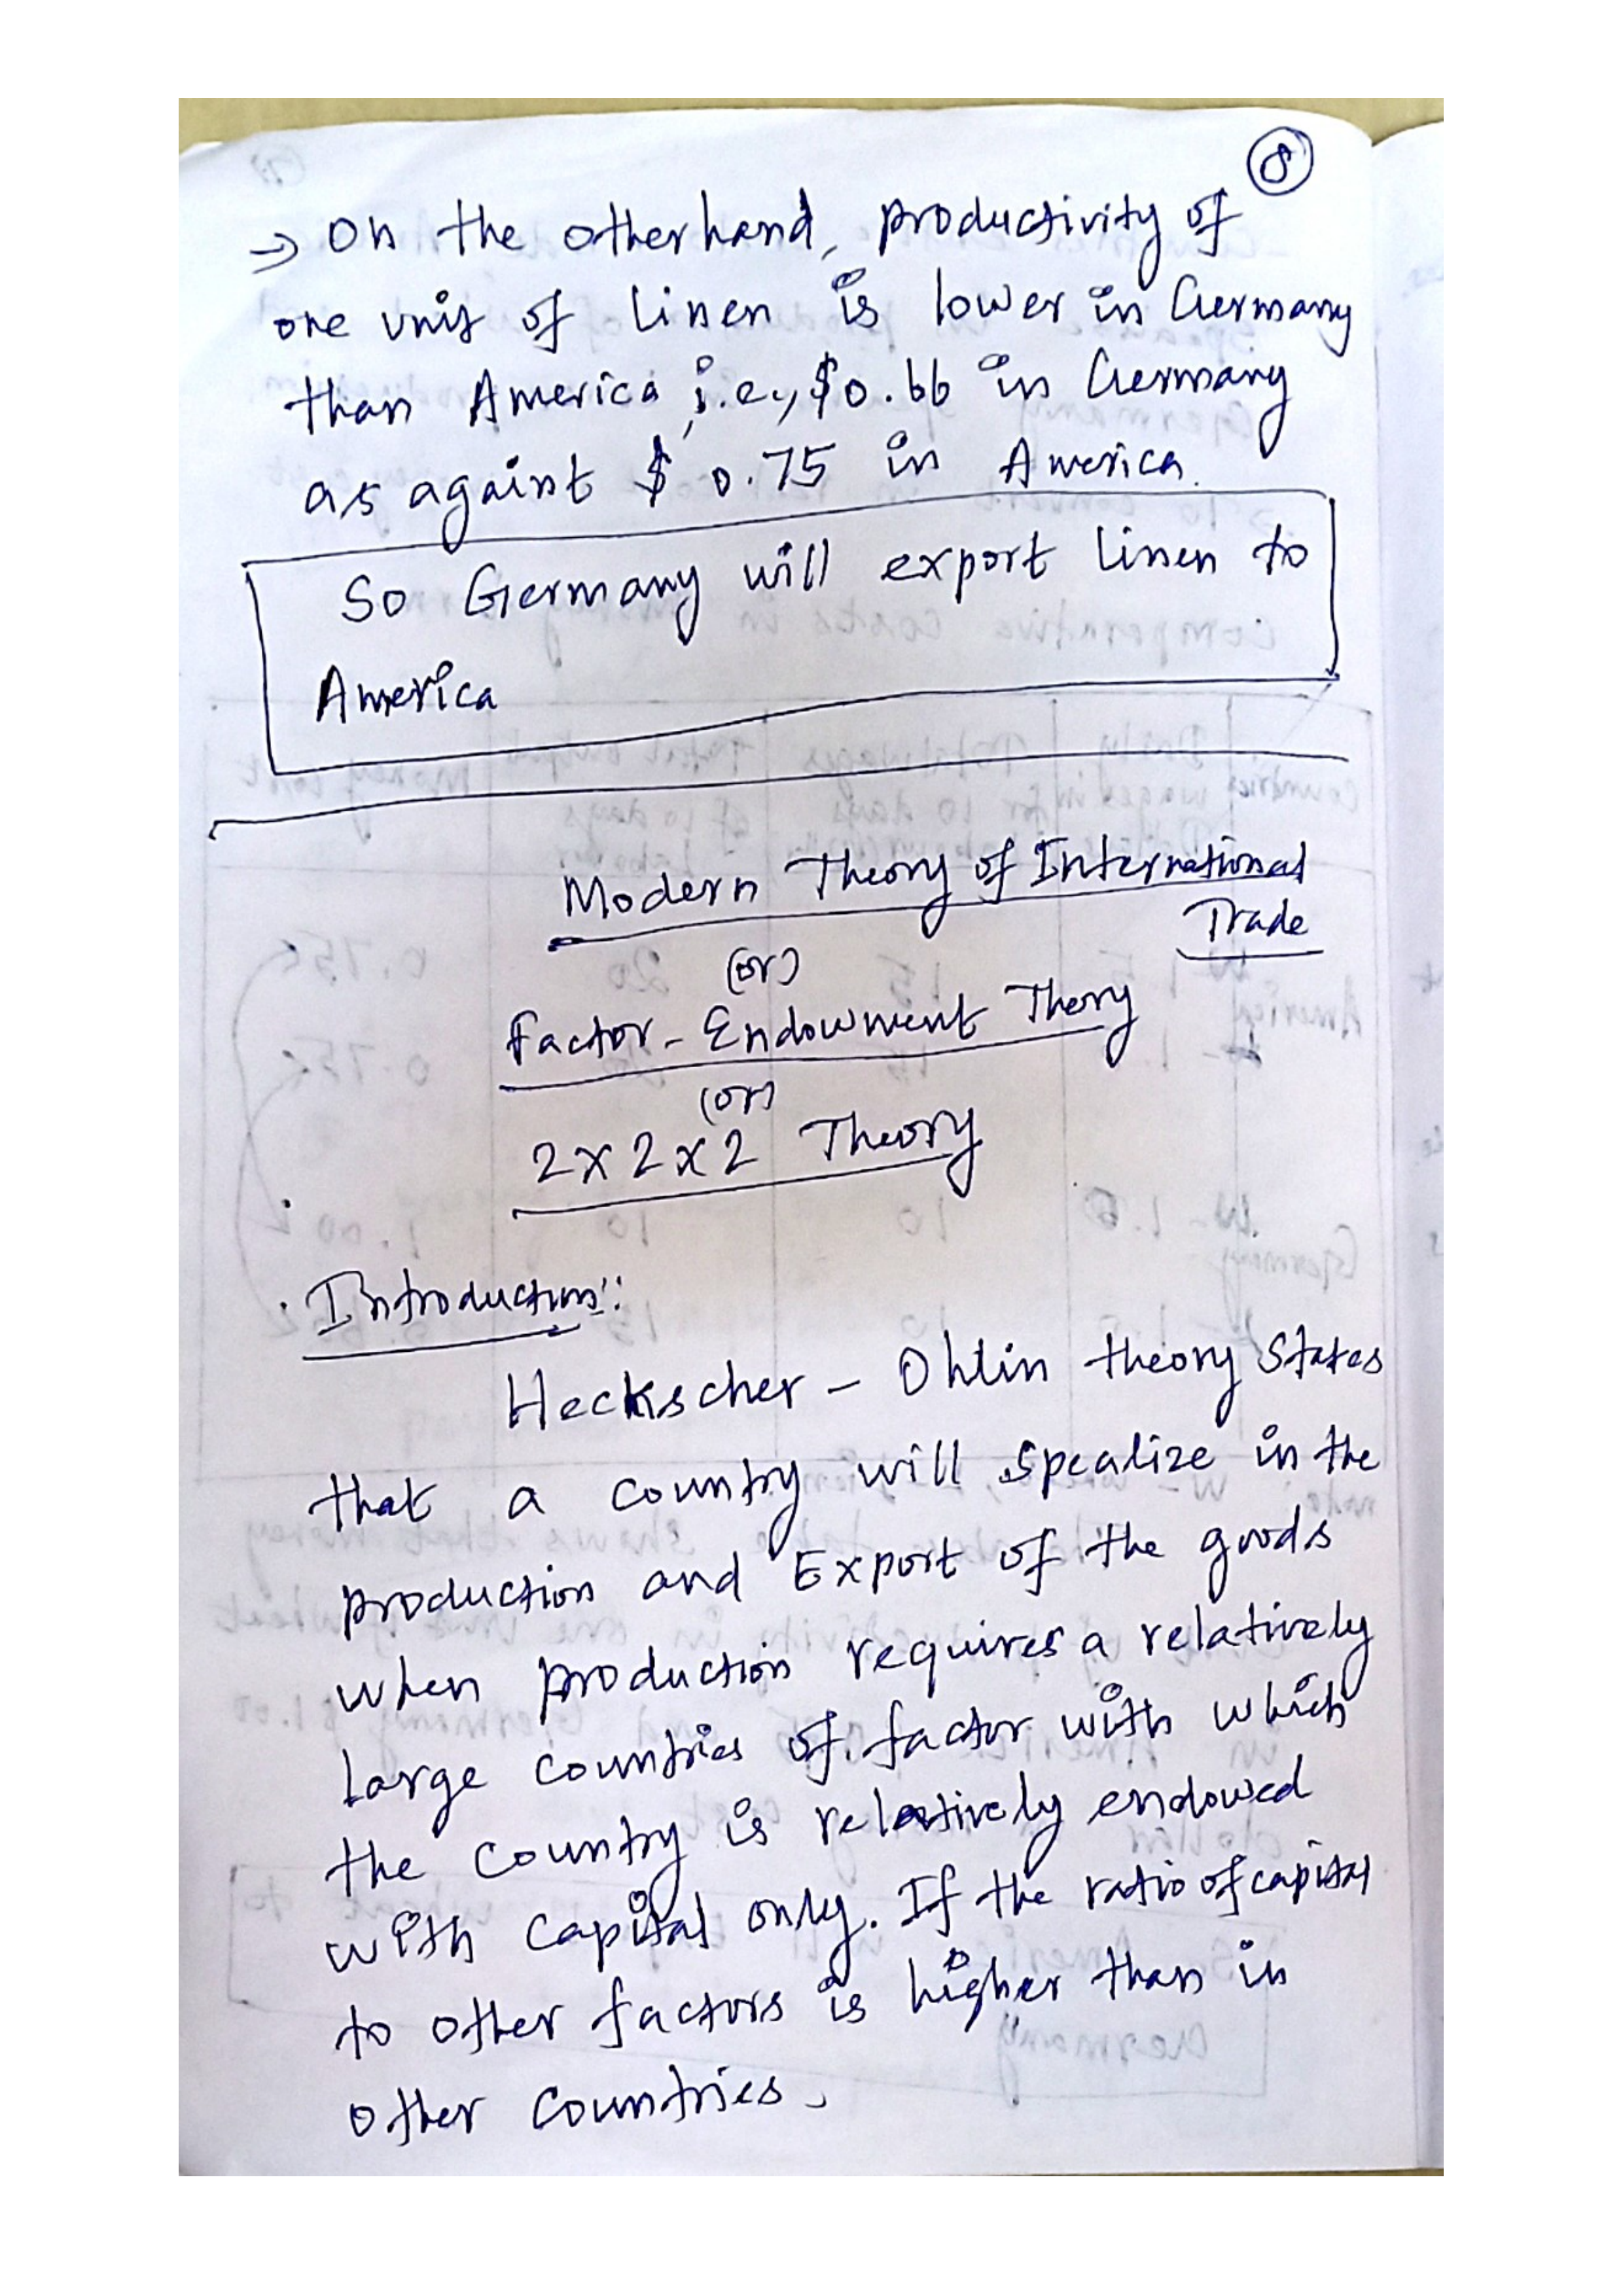 8
→ On the otherhand, productivity of
one unit of linen is lower in Germany
than America i.e., $0.66 in Germany
as against $ 0.75 in America.
So Germany will export linen to
America
Modern Theory of International
Trade
(or)
Factor - Endowment Theory
(or)
2x2x2 Theory
Introduction:
Heckscher - Ohlin theory states
that a country will spealize in the
production and Export of the goods
when production requires a relatively
large countries of factor with which
the country is relatively endowed
with capital only. If the ratio of capital
to other factors is higher than in
other countries.